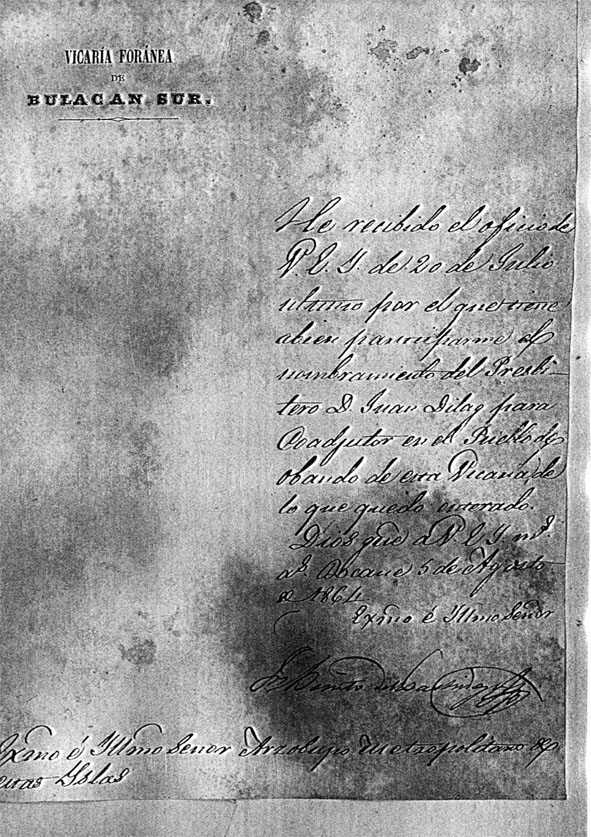 VICARÍA FORÁNEA
DE
BULACAN SUR.
He recibido el oficio de
V. E. Y. de 20 de Julio
ultimo por el que tiene
abien participarme el
nombramiento del Presbi-
tero D. Juan Dilag para
Coadjutor en el Pueblo de
obando de esta Vicaria, de
lo que quedo enterado.
Dios gue. a V. E. Y. ms.
as. 5 de Agosto
de 1864
Exmo é Yllmo Señor
Fr. Benito
Exmo é Yllmo Señor Arzobispo Metropolitano de
estas Yslas